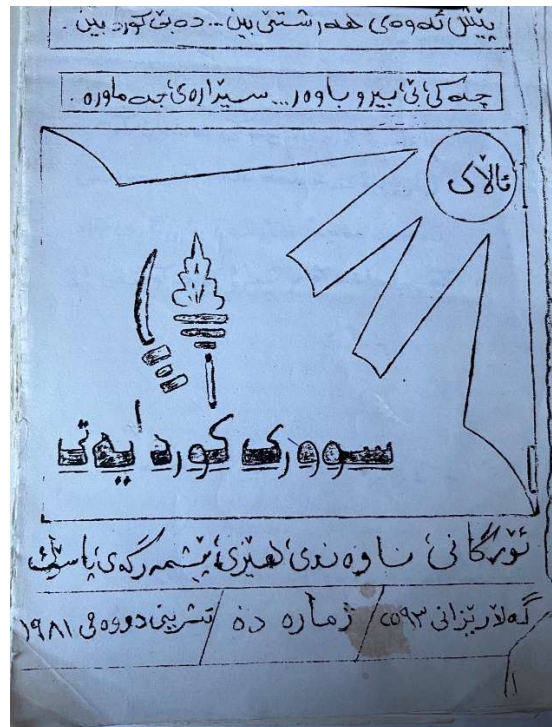 پێش ئەوەی هەر شتێ بین... دەبێ کورد بین.
چەکی بێ بیروباوەر... سێدارەی جەماورە.
ئاڵای
سووری کوردایەتی
ئۆرگانی ناوەندی هێزی پێشمەرگەی پاسۆک
گەڵارێزانی ٢٥٩٣ / ژمارە دە / تشرینی دووەمی ١٩٨١
١